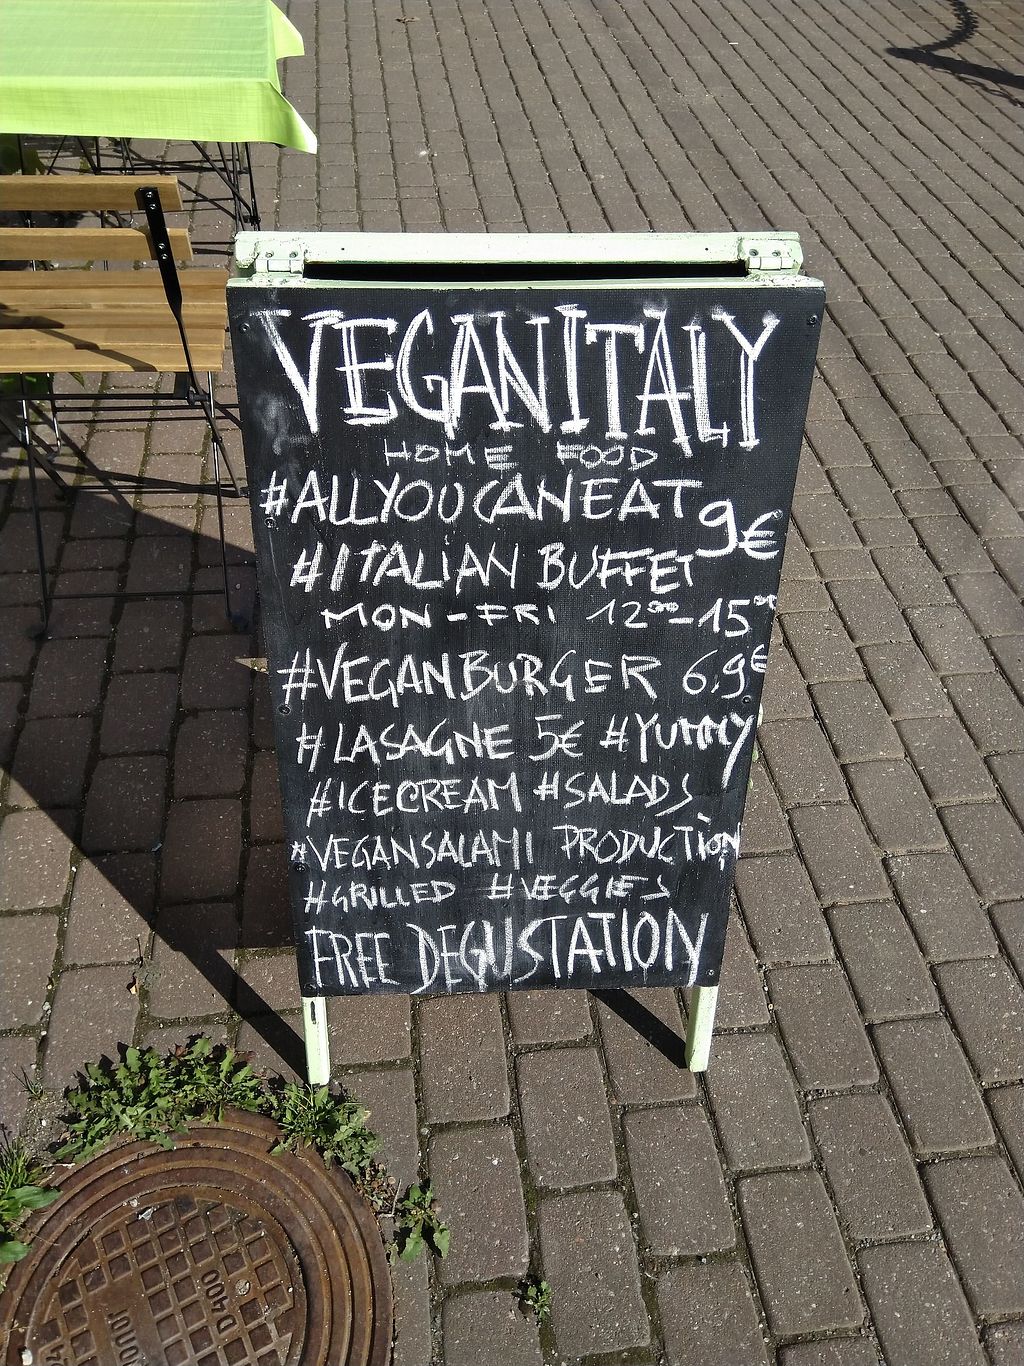 VEGANITALY
HOME FOOD
#ALLYOUCANEAT 9€
#ITALIAN BUFFET
MON-FRI 12⁰⁰-15⁰⁰
#VEGANBURGER 6,9€
#LASAGNE 5€ #YUMMY
#ICECREAM #SALADS
#VEGANSALAMI PRODUCTION
#GRILLED #VEGGIES
FREE DEGUSTATION
D400